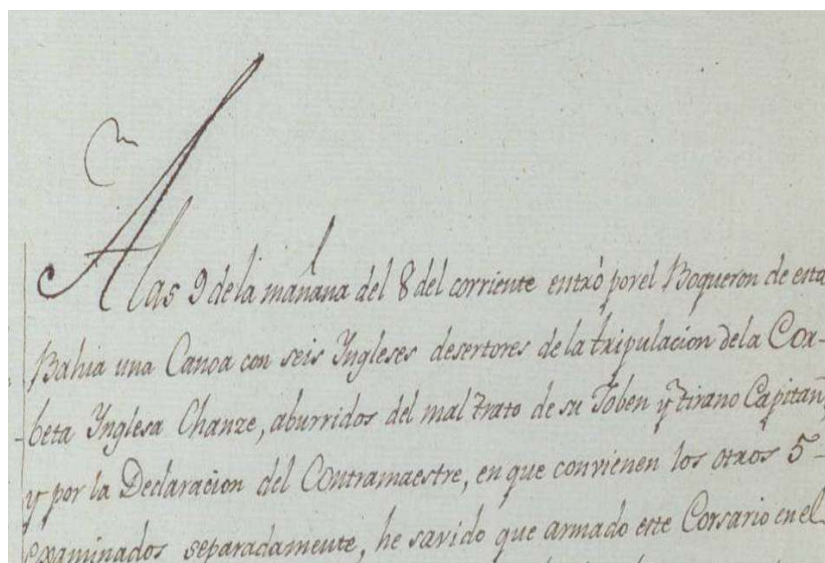 A las 9 de la mañana del 8 del corriente entró por el Boqueron de esta
Bahia una Canoa con seis Yngleses desertores de la tripulacion de la Cor-
beta Ynglesa Chanze, aburridos del mal trato de su Joben y tirano Capitan,
y por la Declaracion del Contramaestre, en que convienen los otros 5
examinados separadamente, he savido que armado este Corsario en el